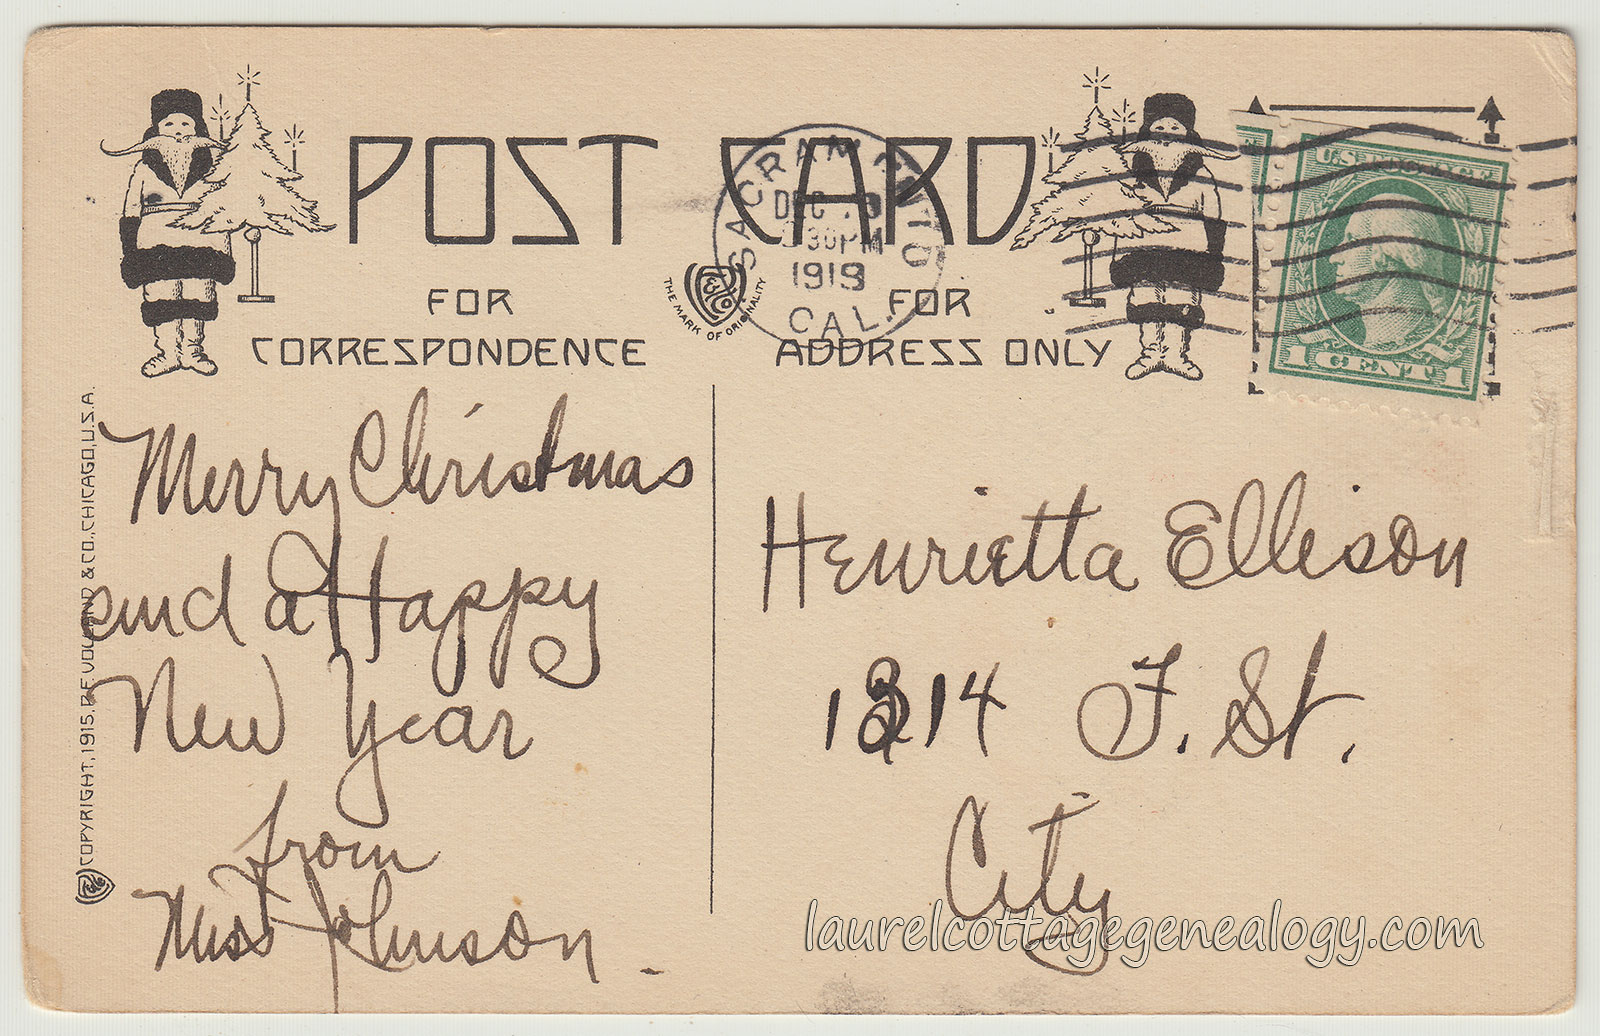 POST CARD
SACRAMENTO
DEC
30 PM
1919
CAL.
THE MARK OF ORIGINALITY
U.S. POSTAGE
1 CENT 1
FOR
CORRESPONDENCE
FOR
ADDRESS ONLY
COPYRIGHT, 1915, P.F. VOLLAND & CO., CHICAGO, U.S.A.
Merry Christmas
and a Happy
New Year
from
Miss Johnson.
Henrietta Ellison
1314 F. St.
City
laurelcottagegenealogy.com